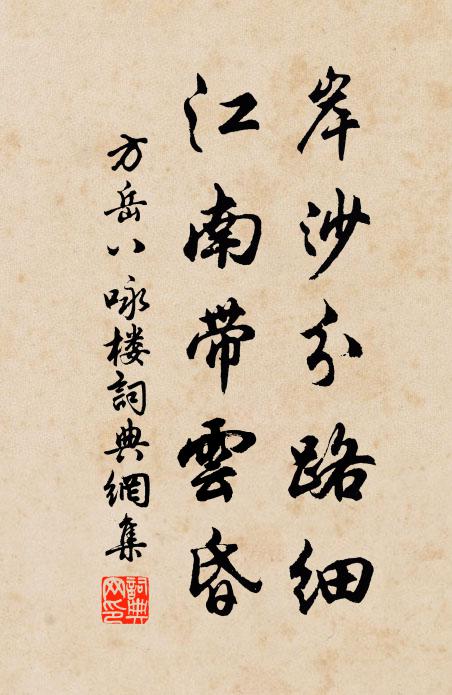 岸沙分路細
江南帶雲昏
方岳八咏楼詞典網集
詞典网印